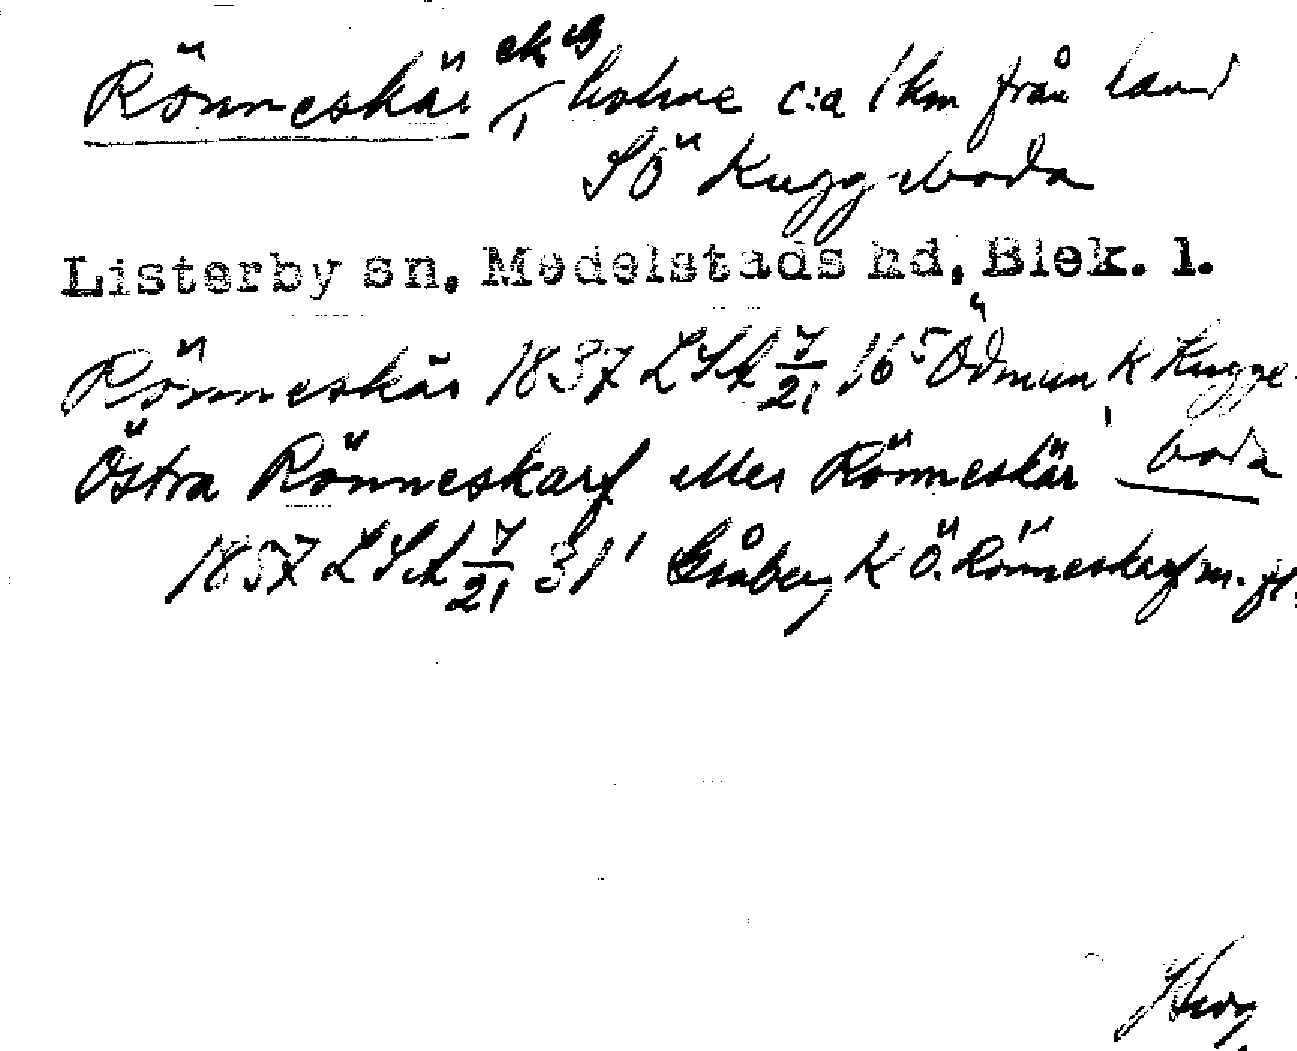 Rönneskär ek B holme c:a 1 km från land
SÖ Kuggeboda
Listerby sn, Medelstads hd, Blek. l.
Rönneskär 1837 LSA 7/21 16⁵ Ödmun K Kugge-
boda
Östra Rönneskarf eller Rönneskär
1857 LSA 7/21 31¹ Gråberg K Ö. Rönneskarf m. fl.